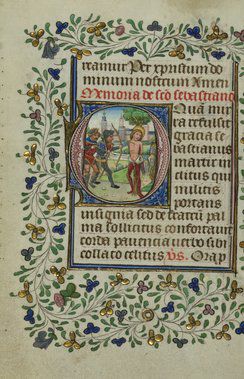 eamur Per xpristum do
minum nostrum Amen
Memoria de sco sebastiano
Quam mi
ra refulsit
gracia se
bastianus
martir in
clitus qui
militis
portans
insignia sed de fratrum pal
ma sollicitus confortauit
corda pauencia verbo sibi
collato celitus vs. Orap